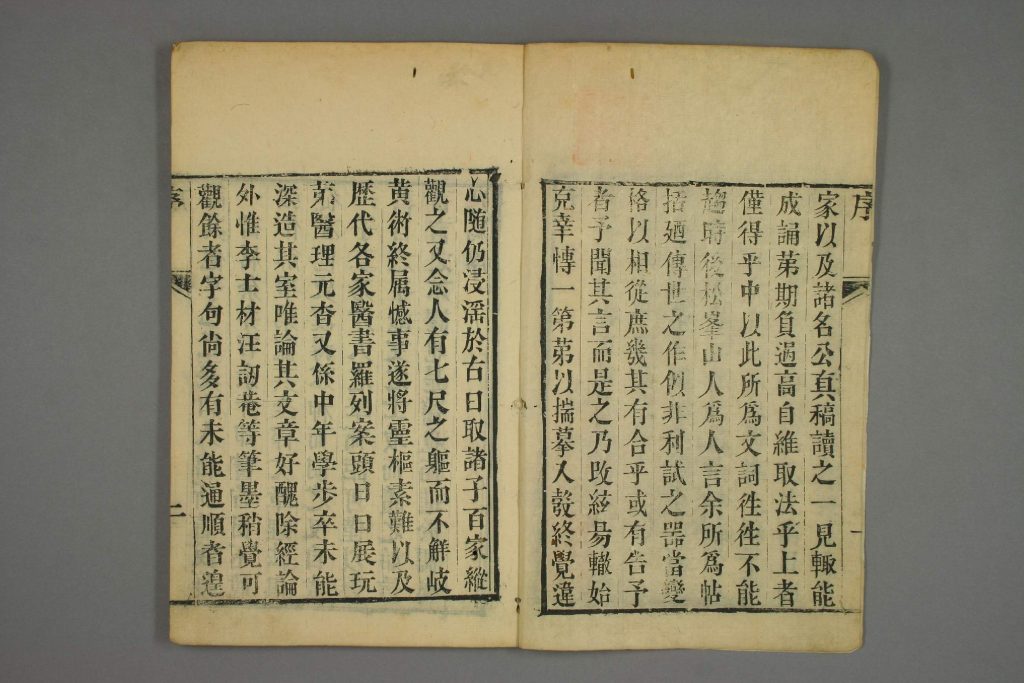 序
一
家以及諸名公真稿讀之一見輙能
成誦第期負過高自維取法乎上者
僅得乎中以此所爲文詞徃徃不能
趨時後松峯山人爲人言余所爲帖
括廼傳世之作似非利試之器當變
格以相從庶幾其有合乎或有告予
者予聞其言而是之乃改絃昜轍始
克幸博一第苐以揣摹入彀終覺違
心隨仍浸滛於古日取諸子百家縱
觀之又念人有七尺之軀而不觧岐
黄術終属憾事遂將靈樞素難以及
歷代各家醫書羅列案頭日日展玩
苐醫理元杳又係中年學步卒未能
深造其室唯論其文章好醜除經論
外惟李士材汪訒菴等筆墨稍覺可
觀餘者字句尚多有未能通順者遑
序
二